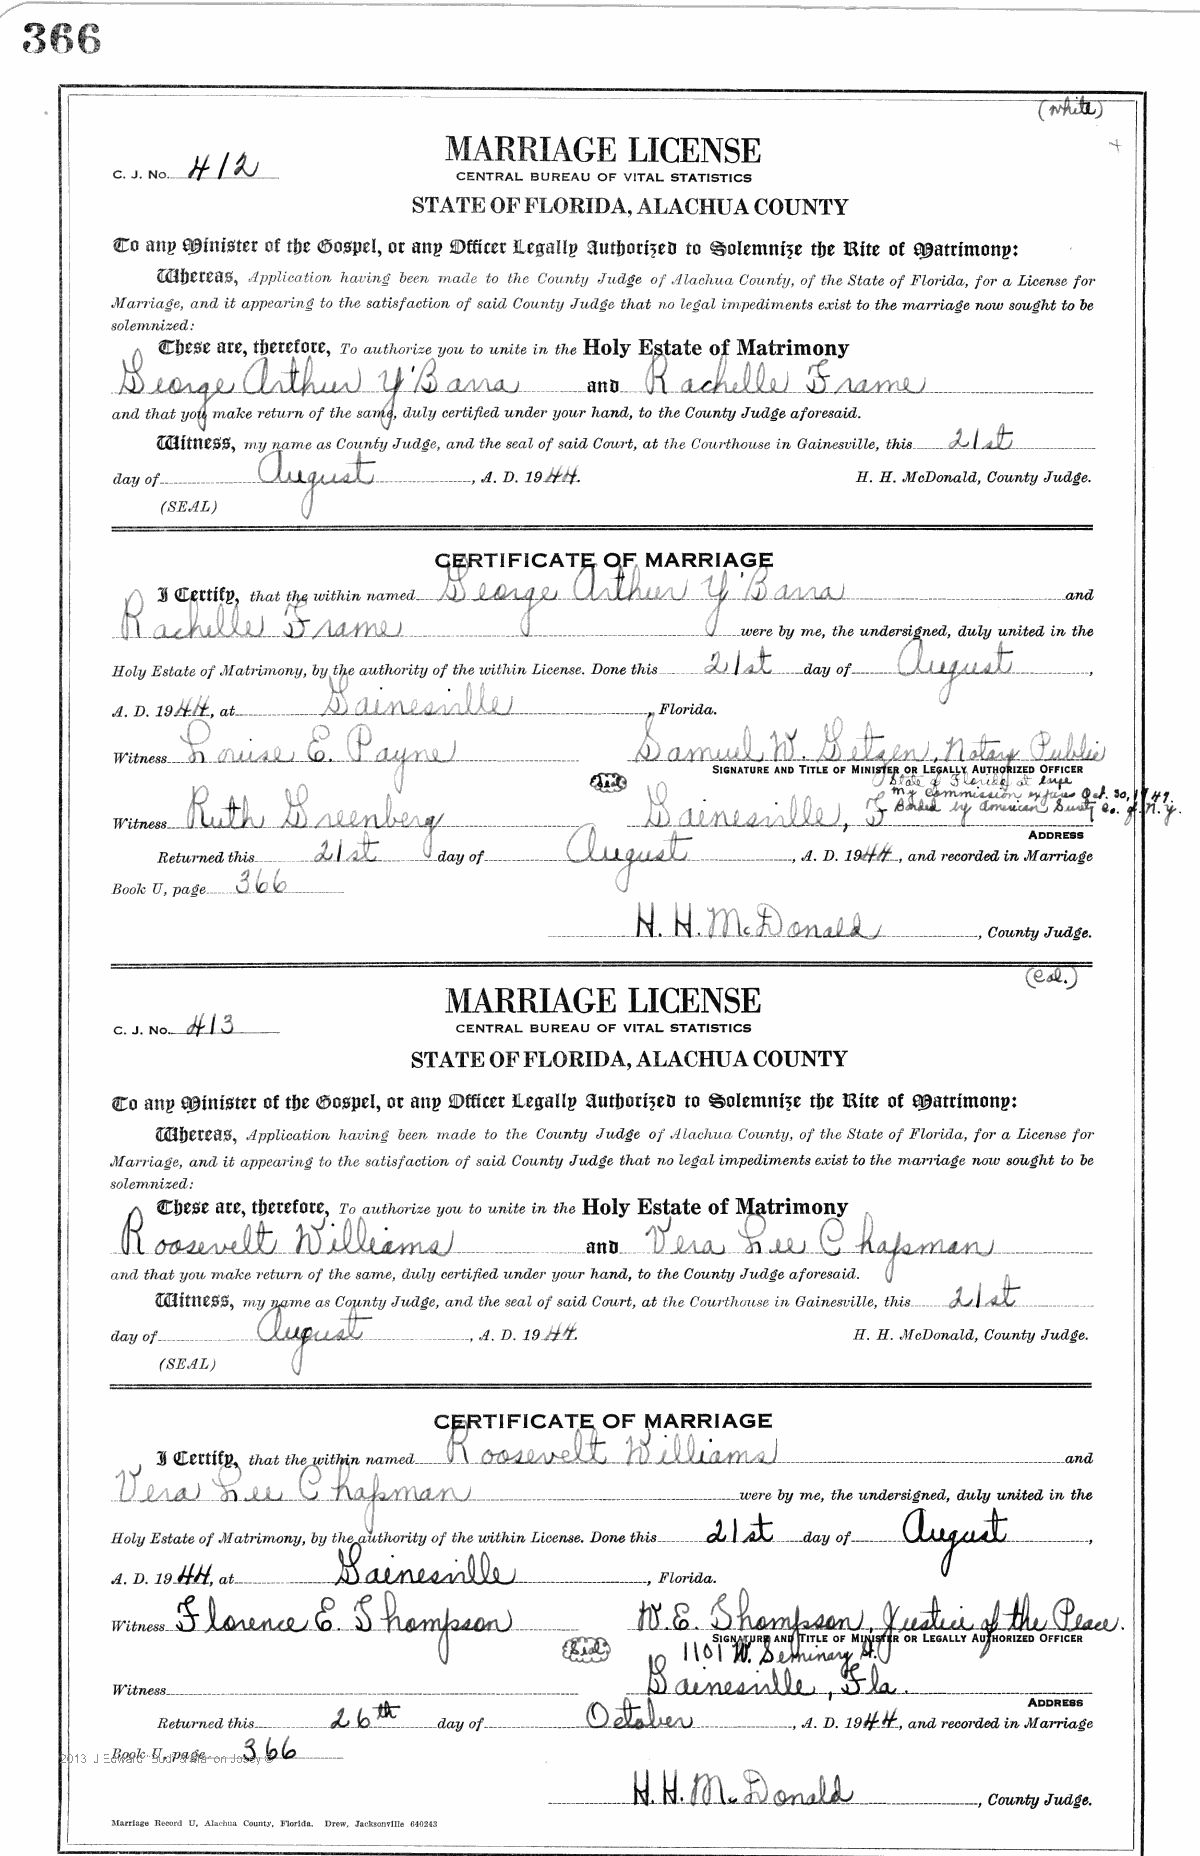 366
(white)
MARRIAGE LICENSE
C. J. No. 412
CENTRAL BUREAU OF VITAL STATISTICS
STATE OF FLORIDA, ALACHUA COUNTY
To any Minister of the Gospel, or any Officer Legally Authorized to Solemnize the Rite of Matrimony:
Whereas, Application having been made to the County Judge of Alachua County, of the State of Florida, for a License for
Marriage, and it appearing to the satisfaction of said County Judge that no legal impediments exist to the marriage now sought to be
solemnized:
These are, therefore, To authorize you to unite in the Holy Estate of Matrimony
George Arthur Y'Barra and Rachelle Frame
and that you make return of the same, duly certified under your hand, to the County Judge aforesaid.
Witness, my name as County Judge, and the seal of said Court, at the Courthouse in Gainesville, this 21st
day of August, A. D. 1944. H. H. McDonald, County Judge.
(SEAL)
CERTIFICATE OF MARRIAGE
I Certify, that the within named George Arthur Y'Barra and
Rachelle Frame were by me, the undersigned, duly united in the
Holy Estate of Matrimony, by the authority of the within License. Done this 21st day of August,
A. D. 1944, at Gainesville, Florida.
Witness Louise E. Payne Samuel W. Getzen, Notary Public
SIGNATURE AND TITLE OF MINISTER OR LEGALLY AUTHORIZED OFFICER
State of Florida at large
(Seal) My commission expires Oct. 30, 1947.
Bonded by American Surety Co. of N. Y.
Witness Ruth Greenberg Gainesville, F
ADDRESS
Returned this 21st day of August, A. D. 1944, and recorded in Marriage
Book U, page 366
H. H. McDonald, County Judge.
(Col.)
MARRIAGE LICENSE
C. J. No. 413
CENTRAL BUREAU OF VITAL STATISTICS
STATE OF FLORIDA, ALACHUA COUNTY
To any Minister of the Gospel, or any Officer Legally Authorized to Solemnize the Rite of Matrimony:
Whereas, Application having been made to the County Judge of Alachua County, of the State of Florida, for a License for
Marriage, and it appearing to the satisfaction of said County Judge that no legal impediments exist to the marriage now sought to be
solemnized:
These are, therefore, To authorize you to unite in the Holy Estate of Matrimony
Roosevelt Williams and Vera Lee Chapman
and that you make return of the same, duly certified under your hand, to the County Judge aforesaid.
Witness, my name as County Judge, and the seal of said Court, at the Courthouse in Gainesville, this 21st
day of August, A. D. 1944. H. H. McDonald, County Judge.
(SEAL)
CERTIFICATE OF MARRIAGE
I Certify, that the within named Roosevelt Williams and
Vera Lee Chapman were by me, the undersigned, duly united in the
Holy Estate of Matrimony, by the authority of the within License. Done this 21st day of August,
A. D. 1944, at Gainesville, Florida.
Witness Florence E. Thompson W. E. Thompson, Justice of the Peace.
SIGNATURE AND TITLE OF MINISTER OR LEGALLY AUTHORIZED OFFICER
(Seal) 1101 W. Seminary St.
Witness Gainesville, Fla.
ADDRESS
Returned this 26th day of October, A. D. 1944, and recorded in Marriage
Book U, page 366
2013 J Edward
H. H. McDonald, County Judge.
Marriage Record U, Alachua County, Florida. Drew, Jacksonville 640243